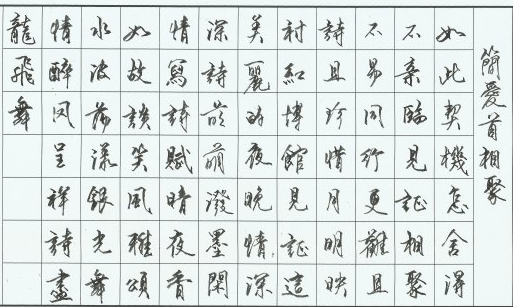 簡愛首相聚
如此契機怎舍得
不親臨見証相聚
不易同行更難且
詩且珍惜月明映
衬紅博館見証這
美麗的夜晚情深
深詩萠潑墨閑
情寫詩賦晴夜香
如故談笑風雅頌
水波蕩漾銀光舞
情醉凤呈祥詩盡
龍飛舞